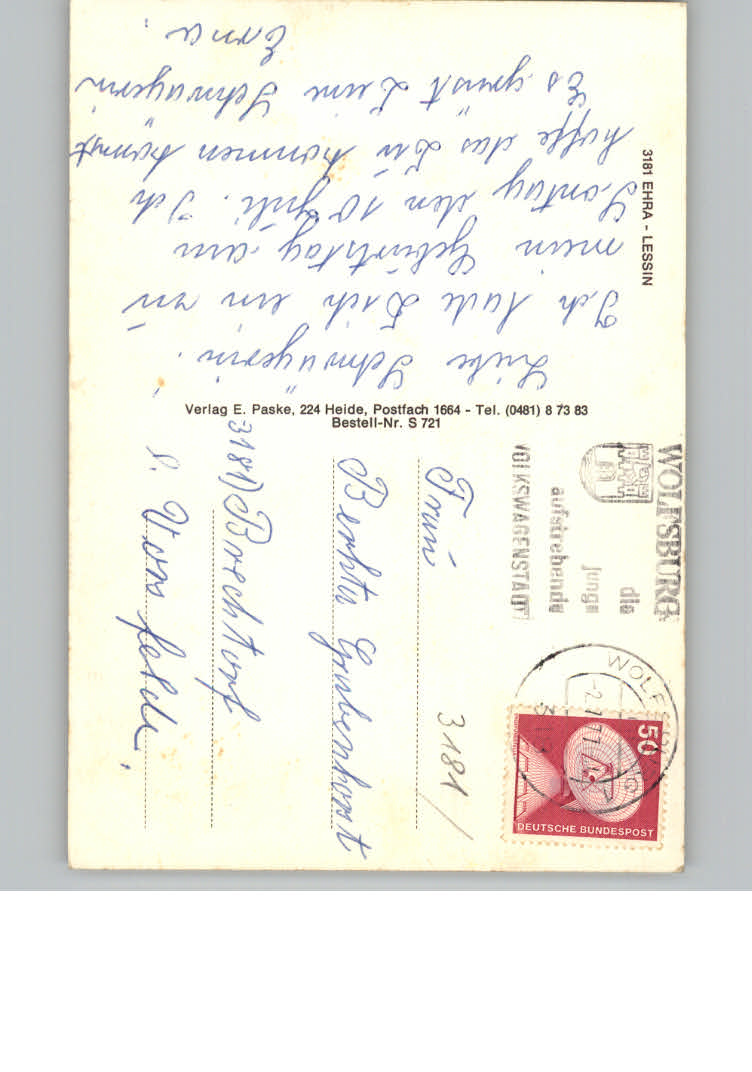 3181 EHRA - LESSIN
Liebe Schwägerin.
Ich lade Dich ein zu
mein Geburtstag am
Sontag den 10 Juli. Ich
hoffe das Du kommen kannst
Es grüst Deine Schwägerin
Erna.
Verlag E. Paske, 224 Heide, Postfach 1664 - Tel. (0481) 8 73 83
Bestell-Nr. S 721
WOLFSBURG
die
junge
aufstrebende
VOLKSWAGENSTADT
WOLFSBURG
50
DEUTSCHE BUNDESPOST
3181/
Frau
Bertha Grabenhorst
3181) Brechtorf
ü. Vorsfelde.